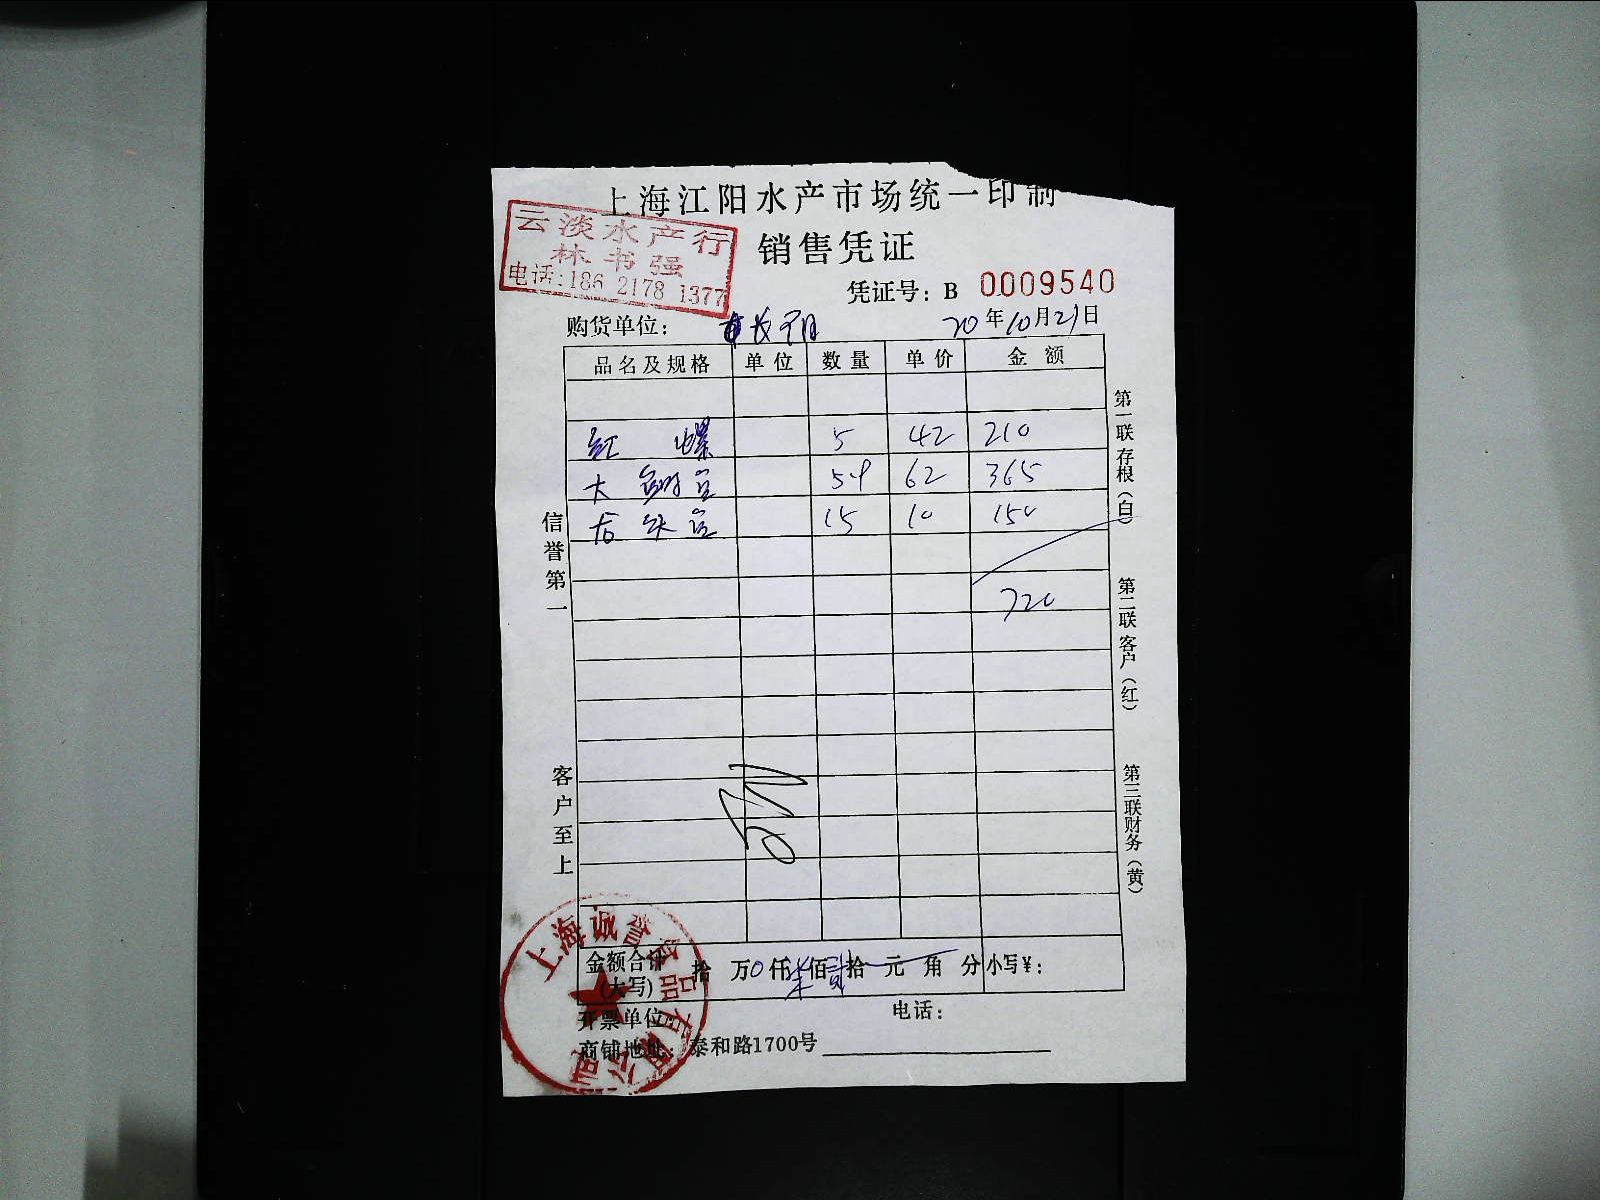 上海江阳水产市场统一印制
云淡水产行
林书强
电话:186 2178 1377
销售凭证
凭证号：B 0009540
购货单位：
20年10月21日
品名及规格 单位 数量 单价 金额
红螺 5 42 210
大 59 62 365
15 10 150
720
信誉第一
客户至上
第一联存根（白）
第二联客户（红）
第三联财务（黄）
金额合计(大写) 拾 万0仟柒佰贰拾 元 角 分 小写¥：
开票单位： 电话：
商铺地址：泰和路1700号
上海诚 品有限公司